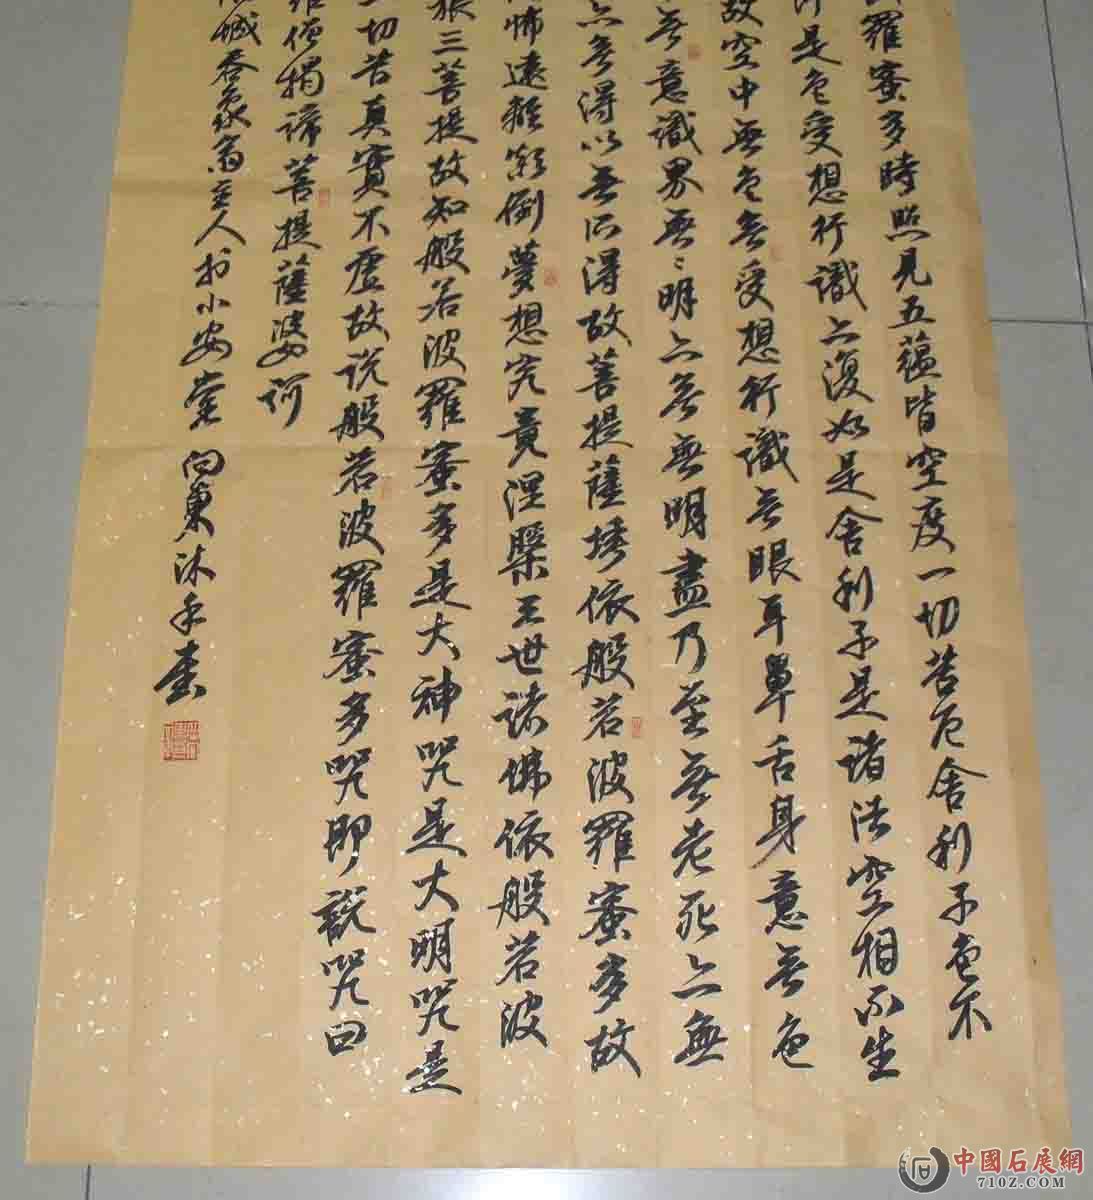 羅蜜多時照見五蘊皆空度一切苦厄舍利子色不
是色受想行識亦復如是舍利子是諸法空相不生
故空中無色無受想行識無眼耳鼻舌身意無色
無意識界無〻明亦無無明盡乃至無老死亦無
亦無得以無所得故菩提薩埵依般若波羅蜜多故
怖遠離顛倒夢想究竟涅槃三世諸佛依般若波
三菩提故知般若波羅蜜多是大神咒是大明咒是
切苦真實不虛故說般若波羅蜜多咒即說咒曰
僧揭諦菩提薩婆訶
主人於小安堂向東沐手書
中國石展網
710Z.COM